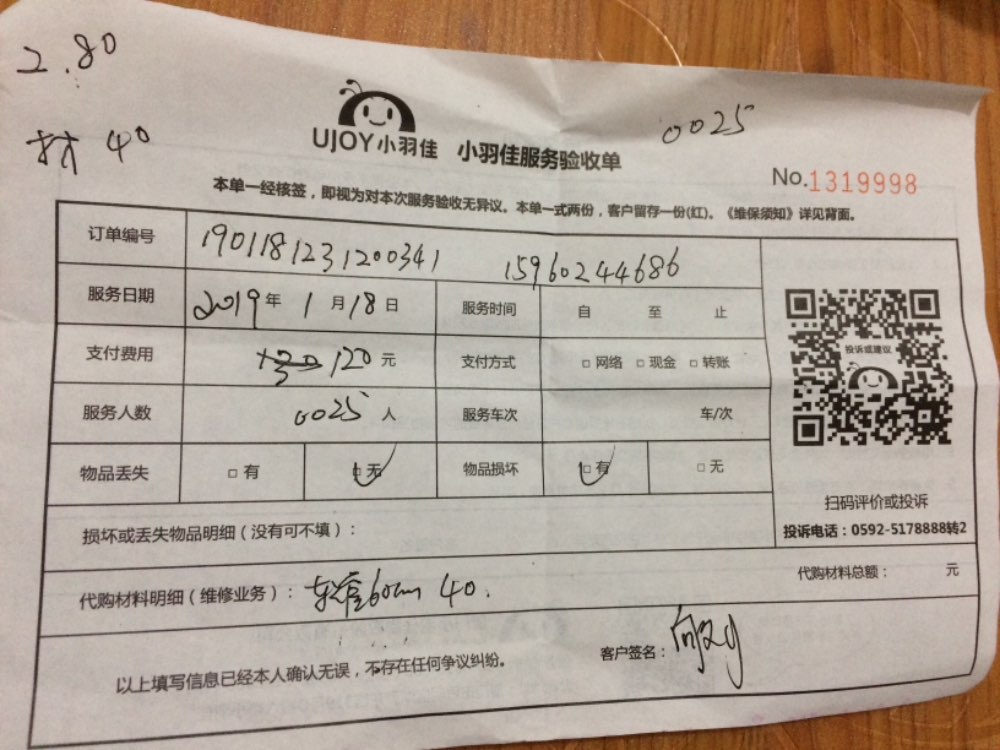 2.80
材 40
0025
UJOY小羽佳 小羽佳服务验收单
No.1319998
本单一经核签，即视为对本次服务验收无异议。本单一式两份，客户留存一份(红)。《维保须知》详见背面。
订单编号 1901181231200341 15960244686
服务日期 2019年 1月18日 服务时间 自 至 止
支付费用 120元 支付方式 □网络 □现金 □转账
服务人数 0025人 服务车次 车/次
物品丢失 □有 □无 物品损坏 □有 □无
投诉或建议
扫码评价或投诉
投诉电话：0592-5178888转2
损坏或丢失物品明细（没有可不填）：
代购材料明细（维修业务）：软管60cm 40.
代购材料总额： 元
以上填写信息已经本人确认无误，不存在任何争议纠纷。
客户签名：